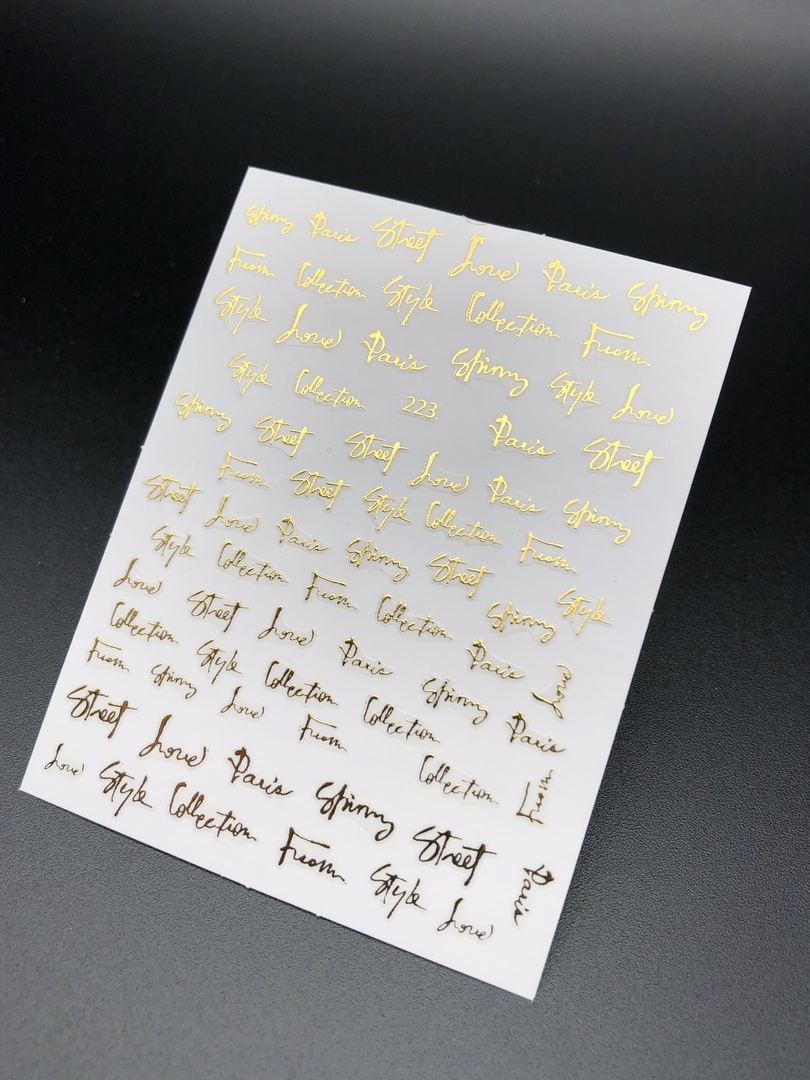 Spinny Paris Street Love Paris Spinny
From Collection Style Collection From
Style Love Paris Spinny Style Love
Style Collection 223 Paris Street
Spinny Street Street Love Paris Spinny
From Street Style Collection From
Street Love Paris Spinny Street Spinny Style
Style Collection From Collection Paris Love
Love Street Love Paris Spinny Paris
Collection Style Collection Collection
From Spinny Love From Collection From
Street Love Paris Spinny Street Paris
Love Style Collection From Style Love